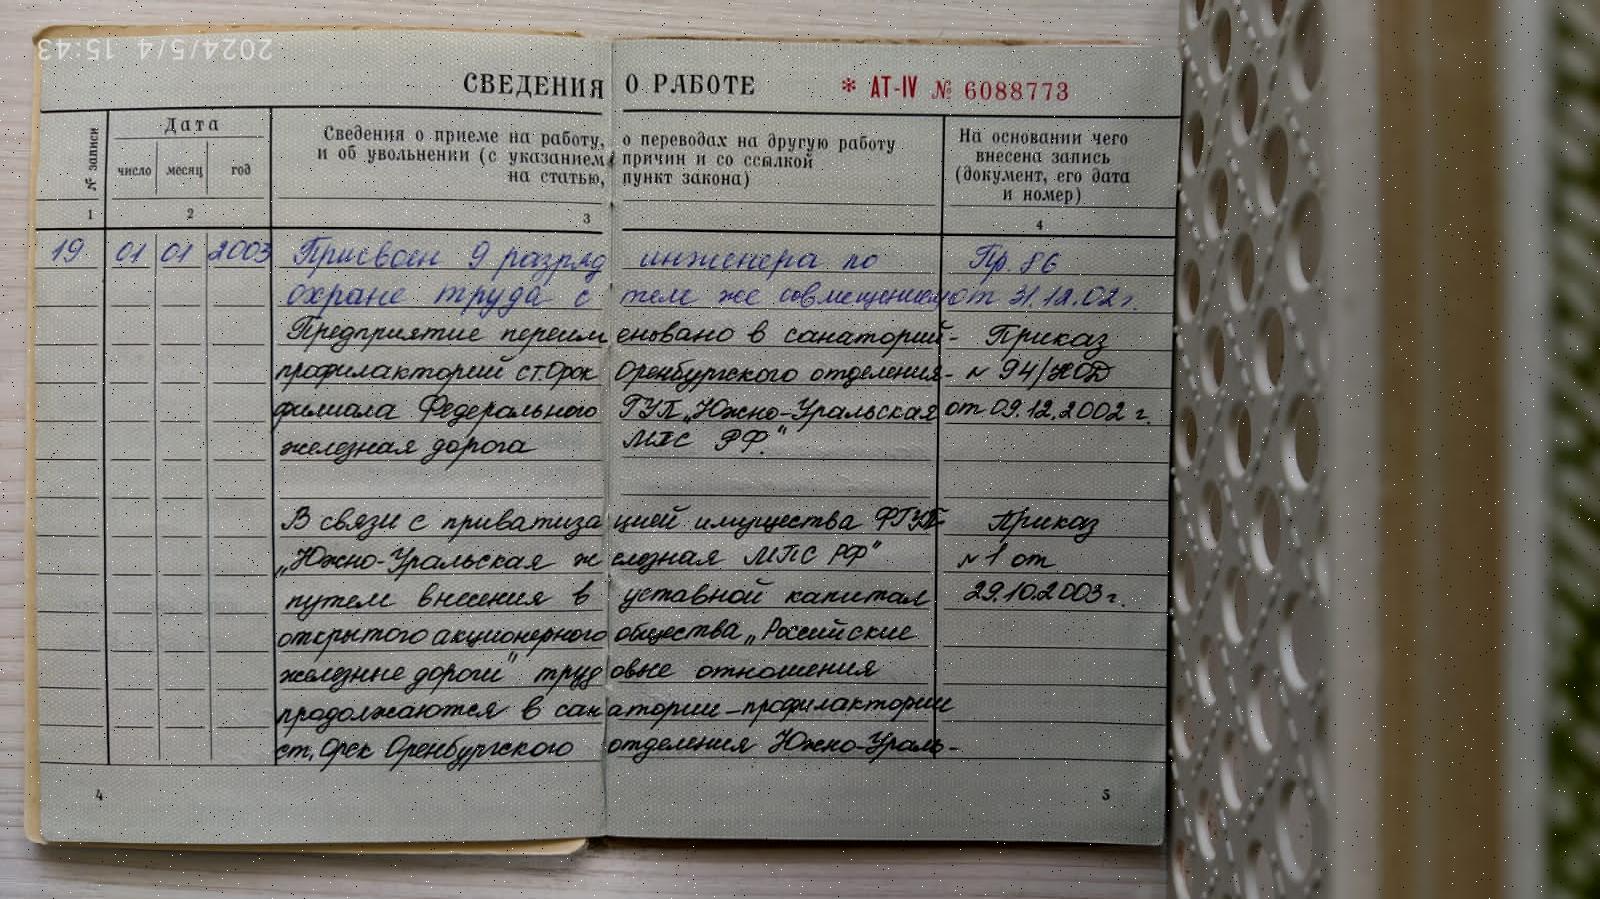 2024/5/4 15:43
СВЕДЕНИЯ О РАБОТЕ * АТ-IV № 6088773
№ записи
Дата
число месяц год
Сведения о приеме на работу, о переводах на другую работу
и об увольнении (с указанием причин и со ссылкой
на статью, пункт закона)
На основании чего
внесена запись
(документ, его дата
и номер)
1 2 3 4
19 01 01 2003 Присвоен 9 разряд инженера по Пр. 86
охране труда с теле же совмещением от 31.12.02г.
Предприятие переименовано в санаторий- Приказ
профилакторий ст.Орск Оренбургского отделения- № 94/НОД
филиала Федерального ГУП „Южно-Уральская от 09.12.2002 г.
железная дорога МПС РФ."
В связи с приватизацией имущества ФГУП Приказ
„Южно-Уральская железная МПС РФ" № 1 от
путем внесения в уставной капитал 29.10.2003г.
открытого акционерного общества „Российские
железные дороги" трудовые отношения
продолжаются в санатории-профилактории
ст. Орск Оренбургского отделения Южно-Ураль-
4 5